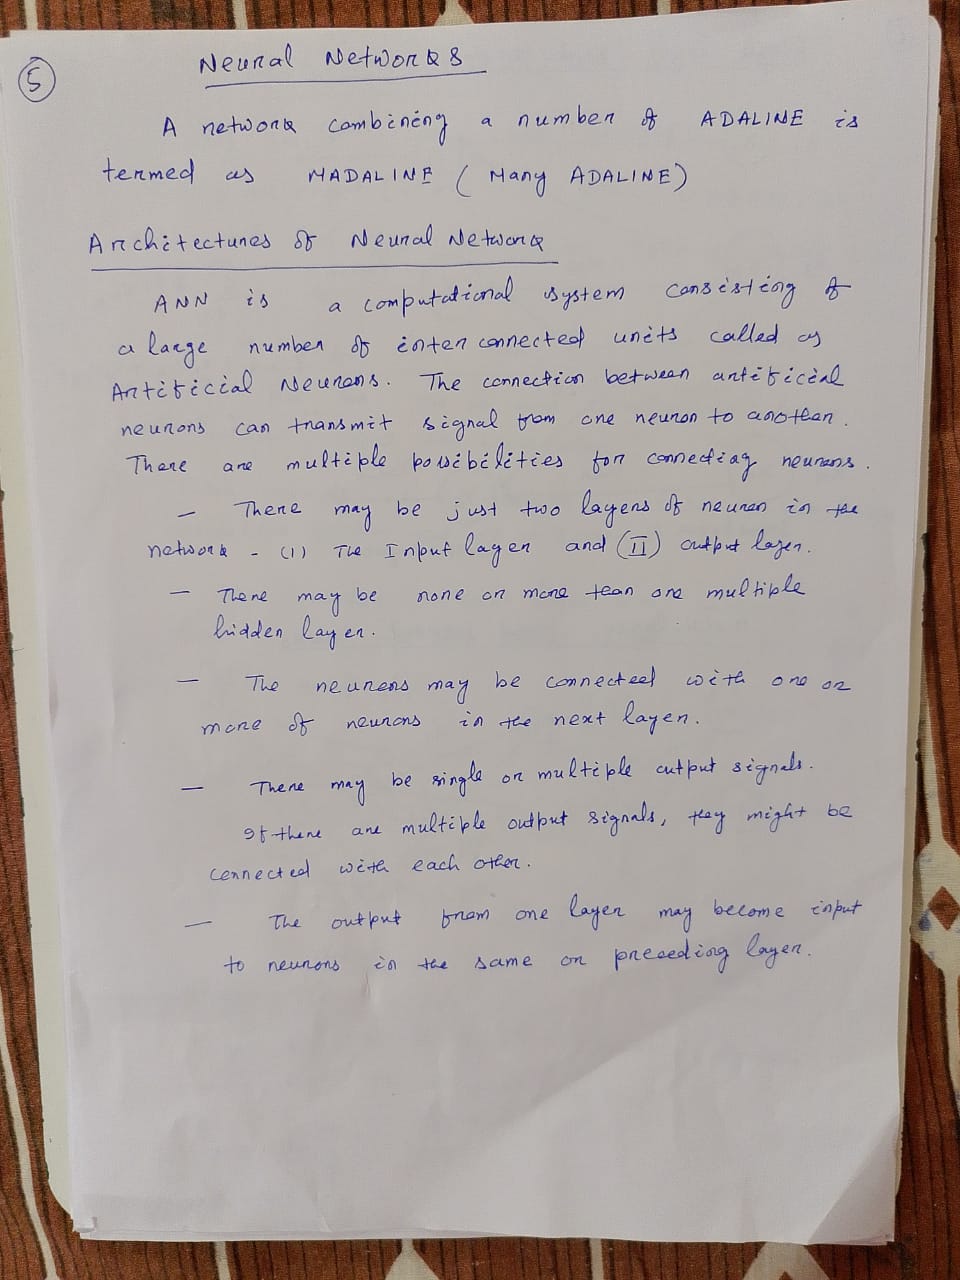 5
Neural Networks
A network combining a number of ADALINE is
termed as MADALINE (Many ADALINE)
Architectures of Neural Network
ANN is a computational system consisting of
a large number of interconnected units called as
Artificial Neurons. The connection between artificial
neurons can transmit signal from one neuron to another.
There are multiple possibilities for connecting neurons.
– There may be just two layers of neuron in the
network - (I) The Input layer and (II) output layer.
– There may be none or more than one multiple
hidden layer.
– The neurons may be connected with one or
more of neurons in the next layer.
– There may be single or multiple output signals.
If there are multiple output signals, they might be
connected with each other.
– The output from one layer may become input
to neurons in the same or preceeding layer.